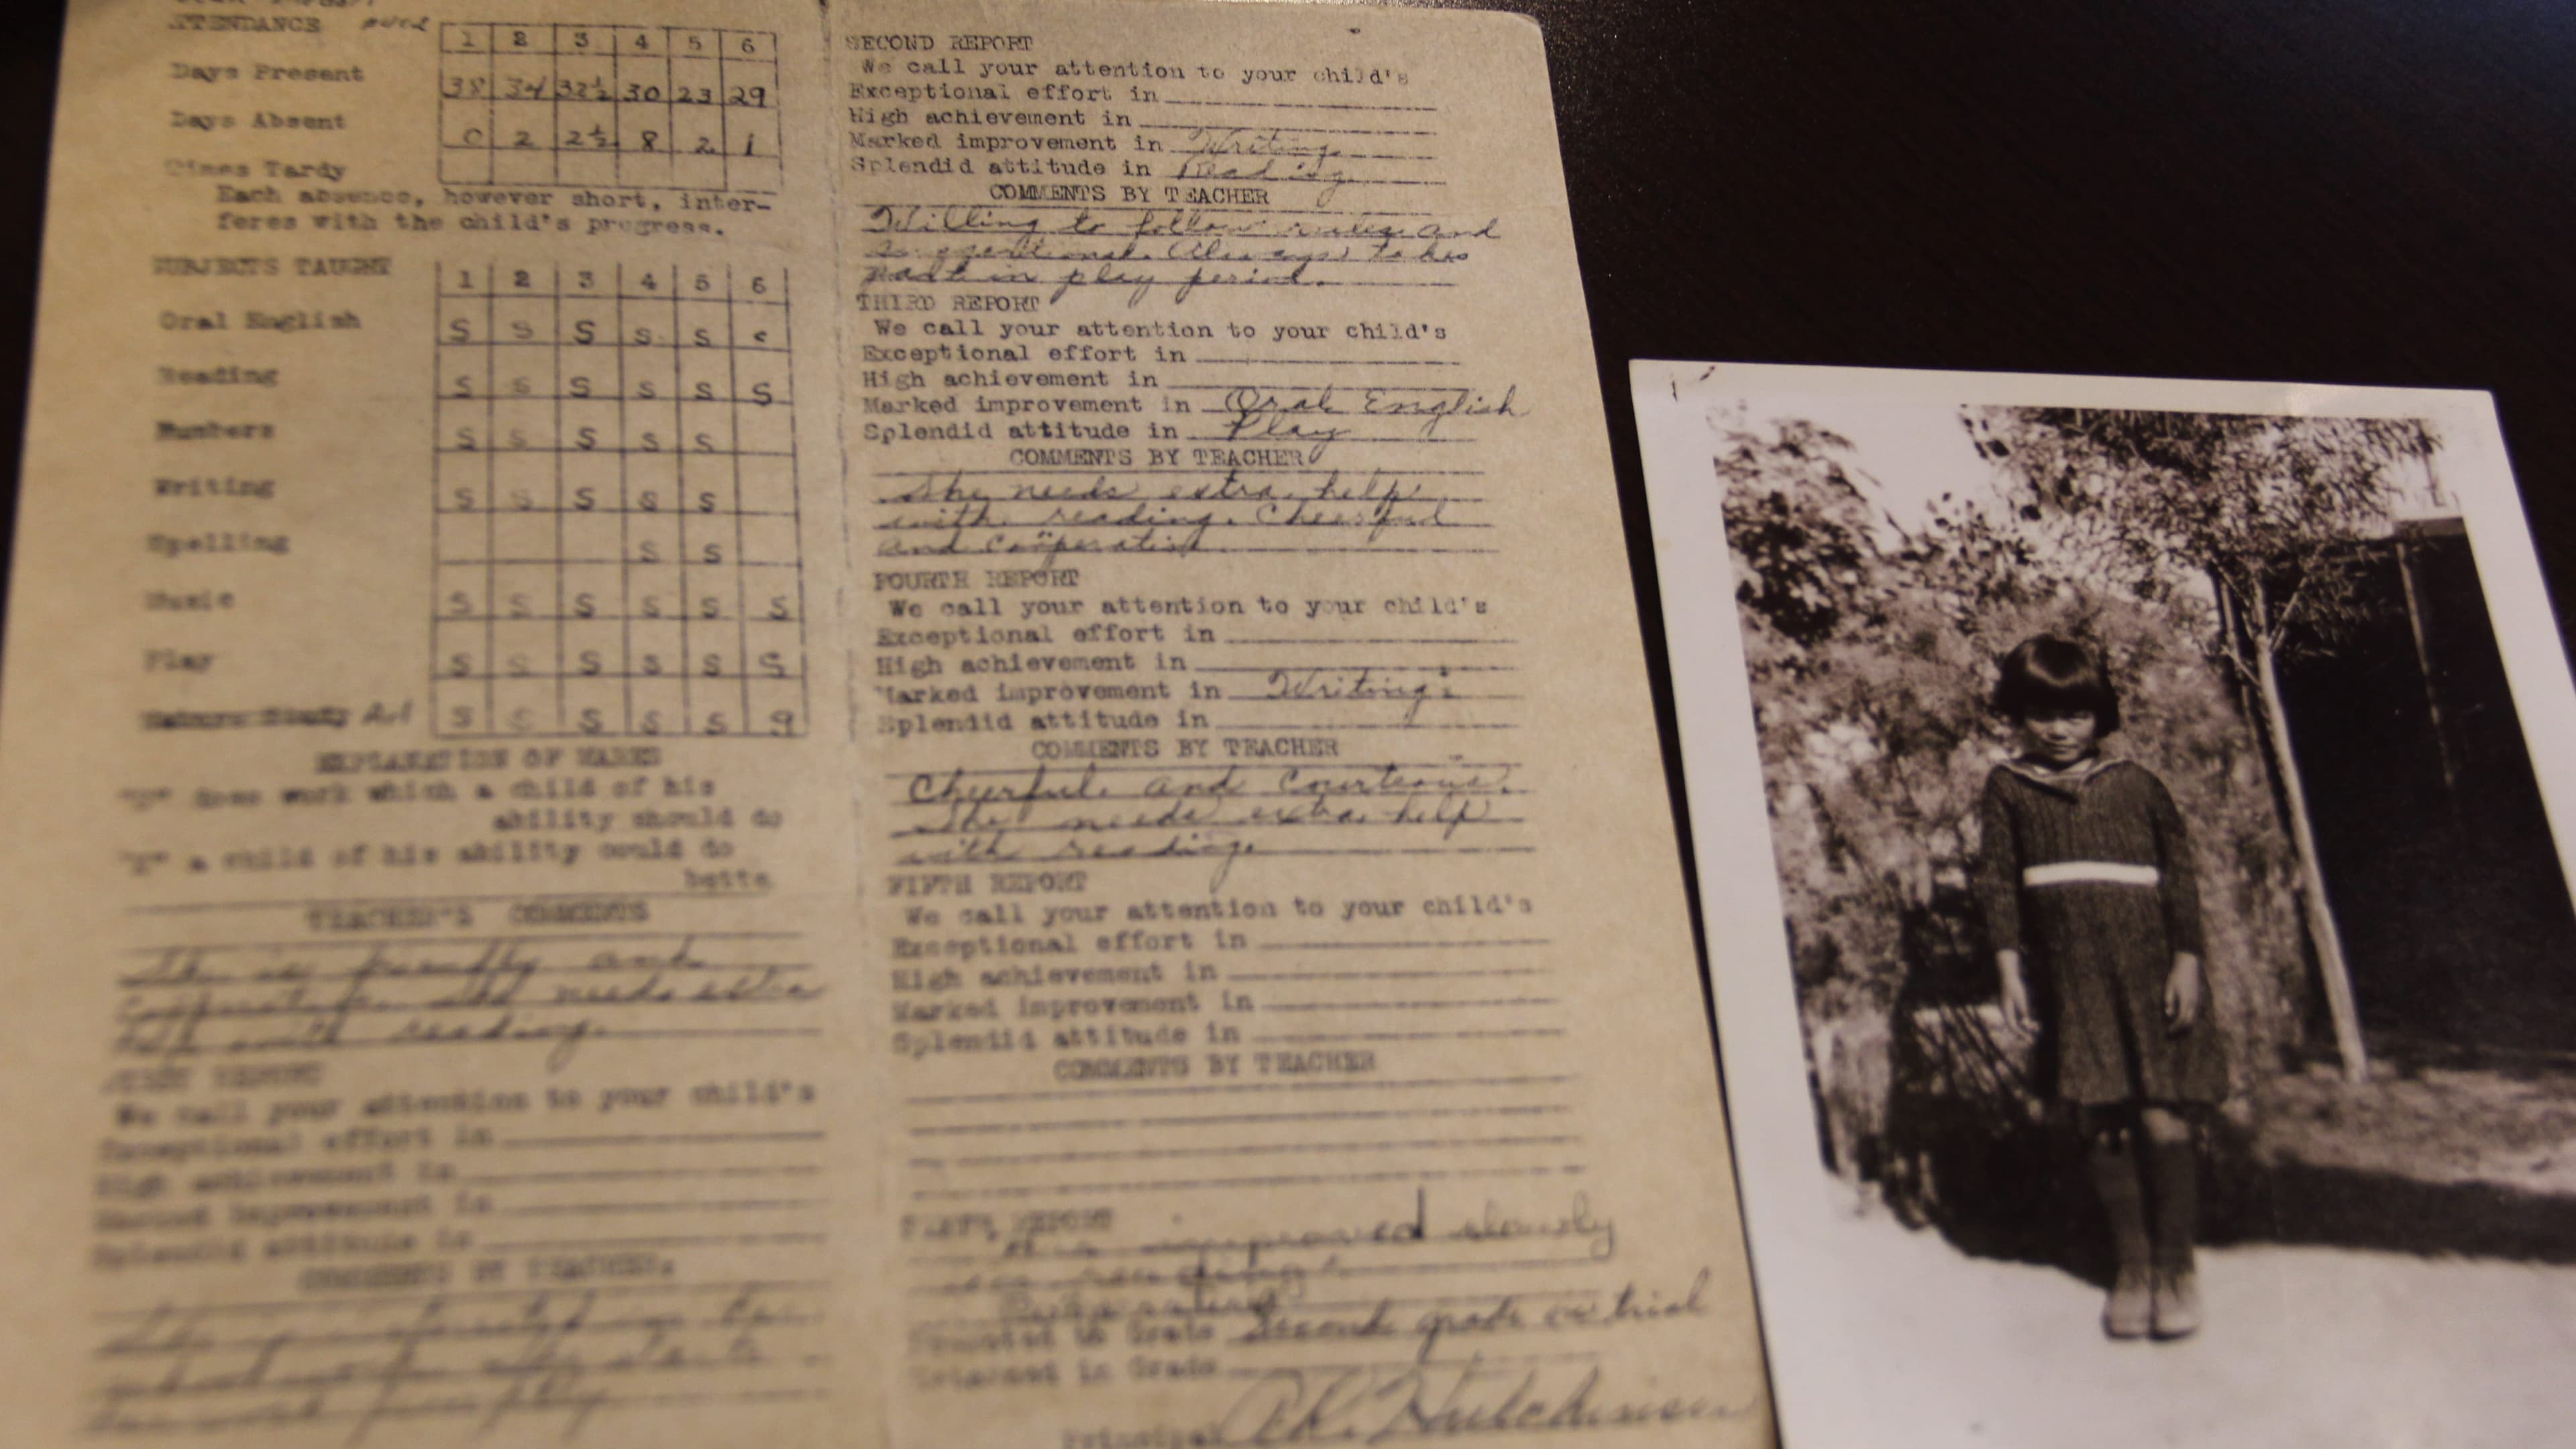 ATTENDANCE
1 2 3 4 5 6
Days Present 38 34 32½ 30 23 29
Days Absent 0 2 2½ 8 2 1
Times Tardy
Each absence, however short, inter-
feres with the child's progress.
SUBJECTS TAUGHT
1 2 3 4 5 6
Oral English S S S S S
Reading S S S S S S
Numbers S S S S S
Writing S S S S S
Spelling S S
Music S S S S S S
Play S S S S S S
Nature Study S S S S S
EXPLANATION OF MARKS
does work which a child of his
ability should do
a child of his ability could do
TEACHER'S COMMENTS
She is friendly and
needs extra
help with reading.
FIRST REPORT
We call your attention to your child's
Exceptional effort in
High achievement in
Marked improvement in
Splendid attitude in
COMMENTS BY TEACHER.
SECOND REPORT
We call your attention to your child's
Exceptional effort in
High achievement in
Marked improvement in Writing
Splendid attitude in Reading
COMMENTS BY TEACHER
Willing to follow rules and
Always takes
part in play period.
THIRD REPORT
We call your attention to your child's
Exceptional effort in
High achievement in
Marked improvement in Oral English
Splendid attitude in Play
COMMENTS BY TEACHER
She needs extra help
with reading. Cheerful
and coöperative
FOURTH REPORT
We call your attention to your child's
Exceptional effort in
High achievement in
Marked improvement in Writing
Splendid attitude in
COMMENTS BY TEACHER
Cheerful and courteous.
She needs extra help
with reading.
FIFTH REPORT
We call your attention to your child's
Exceptional effort in
High achievement in
Marked improvement in
Splendid attitude in
COMMENTS BY TEACHER
SIXTH REPORT
improved slowly
in reading
Promoted to Grade Second grade on trial
Retained in Grade
Principal Hutchinson